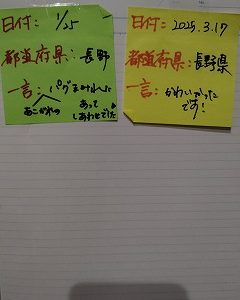 日付: 1/25
都道府県: 長野
一言: パグまみれに
あこがれの
あって
しあわせでした
日付: 2025.3.17
都道府県: 長野県
一言: かわいかった
です!